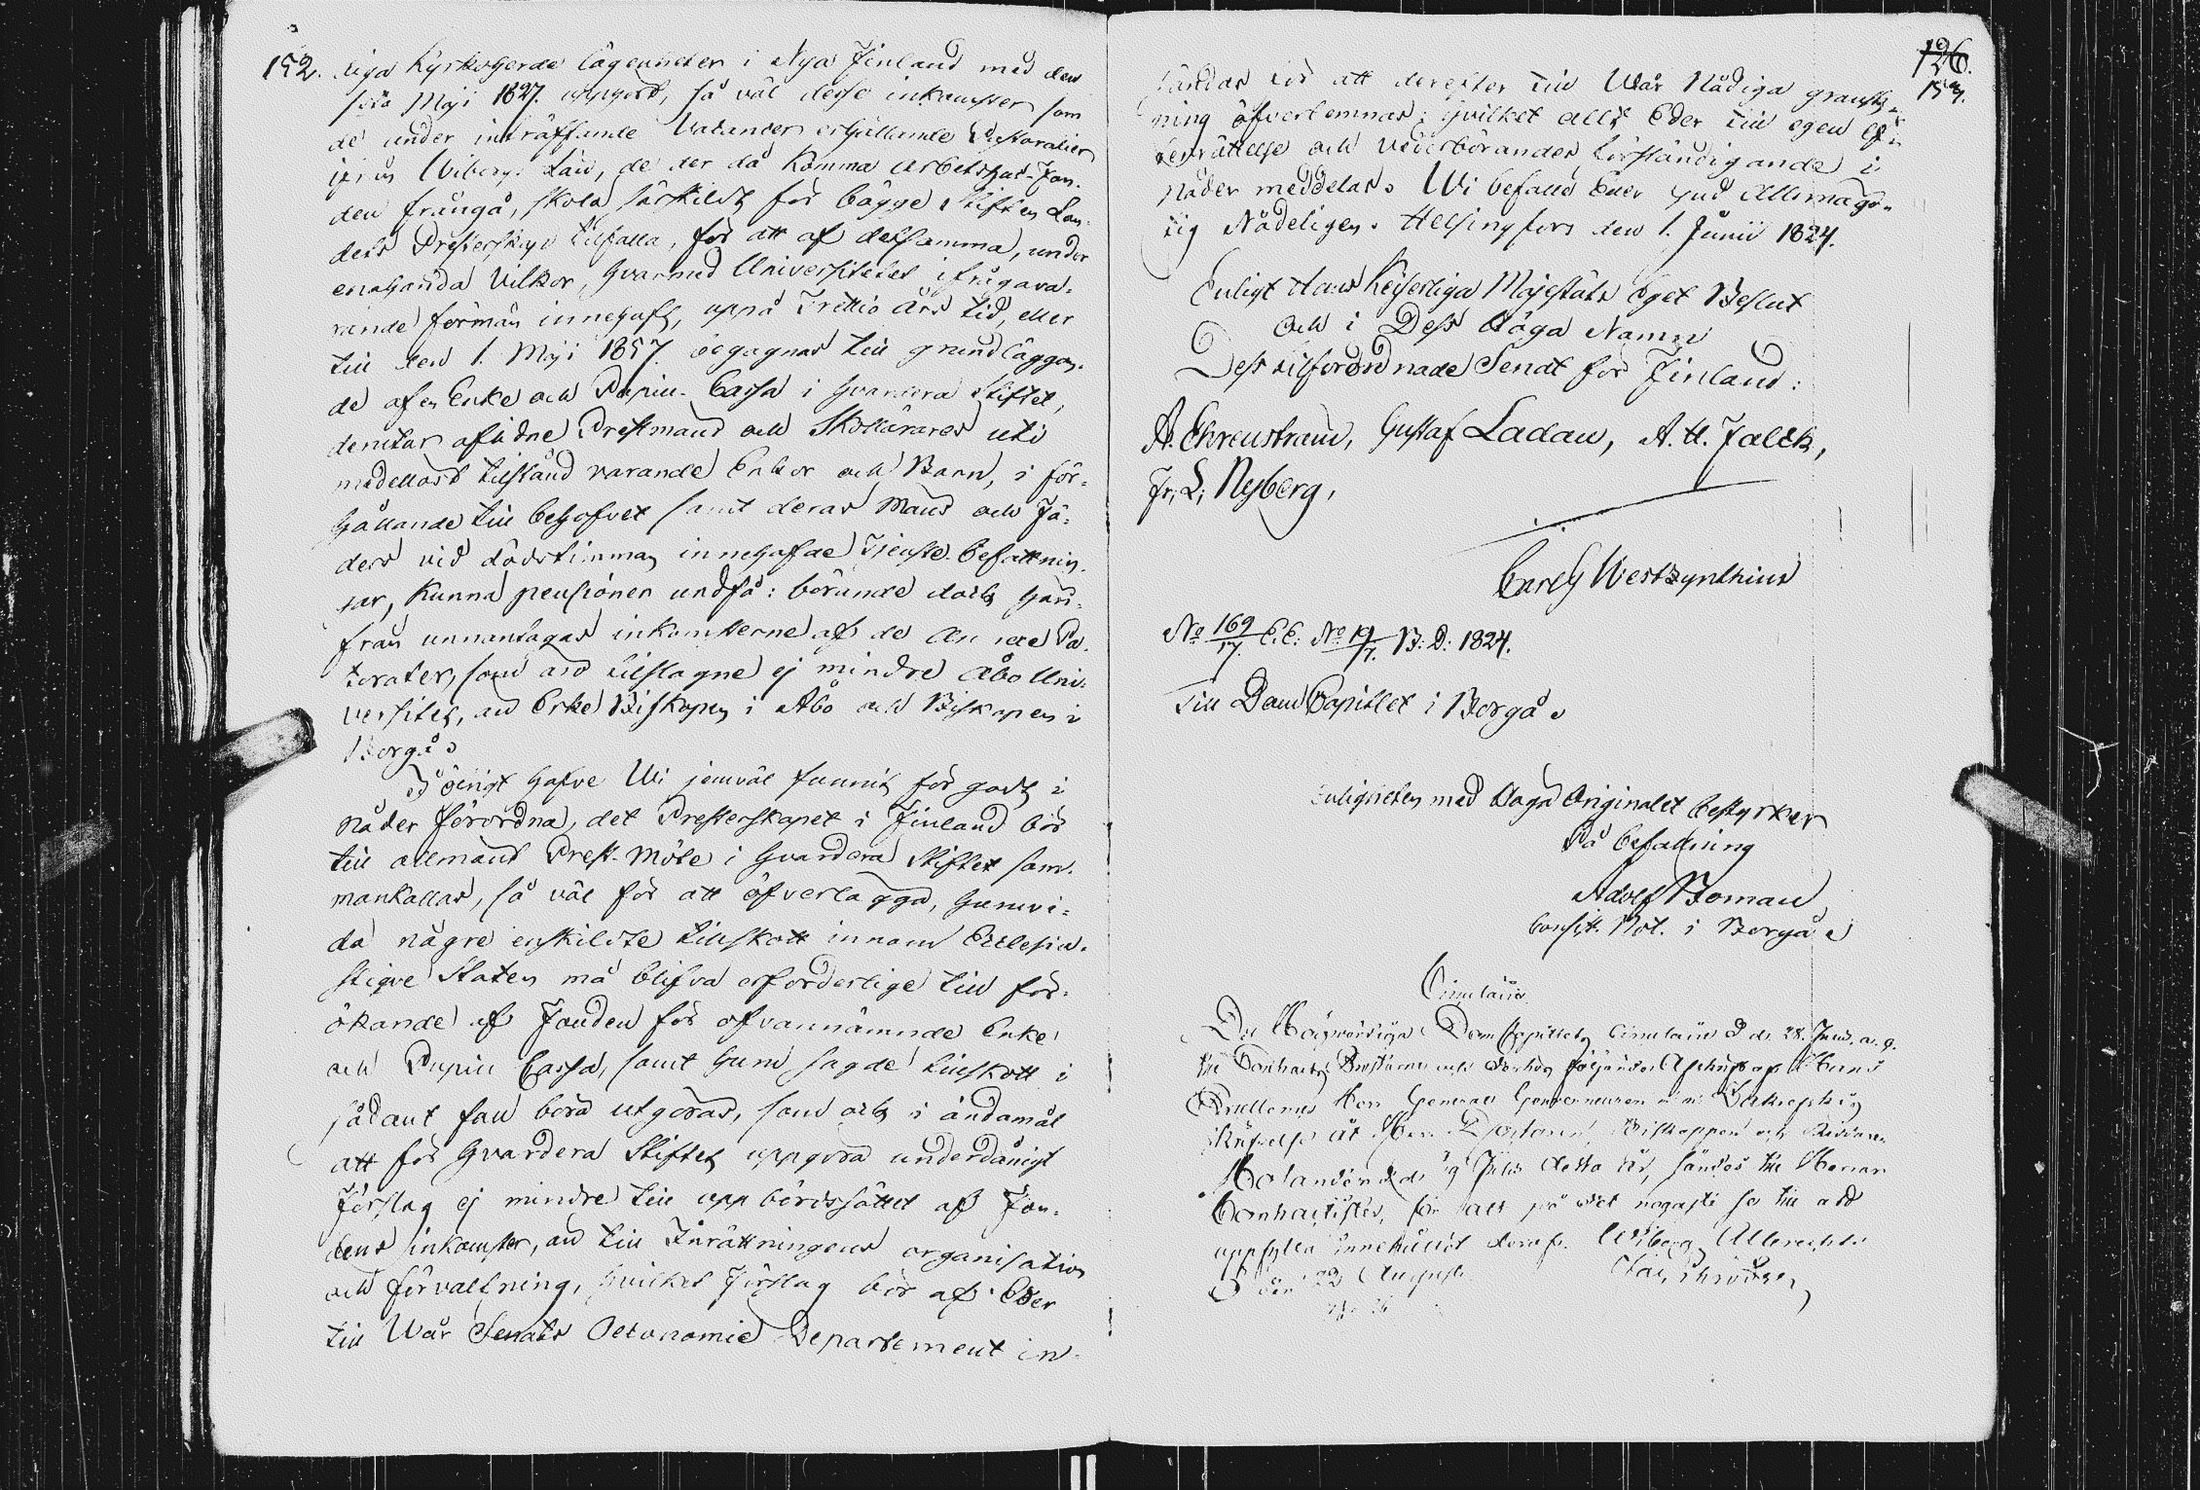 152.
liga Kyrkoherde lägenheter i Nya Finland med den
första Maji 1827. upphört, så väl desse inkomster som
de under inträffande Vacancer erhållande Pastoralier
ifrån Wiborgs Län, de der då komma Arbetshus-Fon-
den frångå, skola särskildt för bägge Stiften Lan-
dets Presterskap tillfalla, för att af detsamma, under
enahanda vilkor, hvarmed Universitetet ifrågava-
rande förmån innehaft, uppå Trettio års tid, eller
till den 1. Maji 1857. begagnas till grundläggan-
de af en Enke och Pupill-Cassa i hvardera Stiftet,
derutur aflidne Prestmäns och Skollärares uti
medellöst tillstånd varande Enkor och Barn, i för-
hållande till behofvet samt deras Mäns och Fä-
ders vid dödstimman innehafde Tjenste-befattnin-
gar, kunna pensioner undfå: börande dock här-
från unnantagas inkomsterne af de Annexe Pa-
storater, som äro tillslagne ej mindre Åbo Uni-
versitet, än Erke Biskopen i Åbo och Biskopen i
Borgå.
I öfrigt hafve Wi jemväl funnit för godt i
Nåder förordna, det Presterskapet i Finland bör
till allmänt Prest-Möte i hvardera Stiftet sam-
mankallas, så väl för att öfverlägga, huruvi-
da några enskildte tillskott innom Ecclesia-
stique Staten må blifva erforderlige till för-
ökande af Fonden för ofvannämnde Enke
och Pupill Cassa, samt huru sagde tillskott i
sådant fall böra utgöras, som ock i ändamål
att för hvardera Stiftet uppgöra underdånigt
Förslag ej mindre till uppbördssättet af Fon-
dens inkomster, än till Inrättningens organisation
och förvaltning, hvilket Förslag bör af Eder
till Wår Senats Oeconomie Departement in-
126.
153.
sändas för att derefter till Wår Nådiga gransk-
ning öfverlemnas; hvilket allt Eder till egen ef-
terrättelse och vederbörandes förständigande i
Nåder meddelas. Wi befalle Eder Gud Allsmäg-
tig Nådeligen. Helsingfors den 1. Junii 1824.
Enligt Hans Kejserliga Majestäts Eget Beslut
och i Dess Höga Namn
Dess tilförordnade Senat för Finland:
A. Ehrenstrom, Gustaf Ladau, A. H. Falck,
Fr. L. Nyberg,
Carl G Westzynthius
No 169/17. E.E: No 19/7. B:D: 1824.
Till Dom Capitlet i Borgå.
Enligheten med Höga Originalet bestyrker
På befallning
Adolf Boman
Consist. Not. i Borgå
Circulair
Det Högvördiga Dom Capitlets Circulair d. 28. Junii a. g.
till Contracts Prostarne och derhos följande Afskrift af Hans
Excellence Herr General Gouverneuren
skrifvelse åt Herr Doctoren, Biskoppen och Riddaren
Molander d. 9 Julii detta år, sändes till Herrar
Contractister, för att på det nogaste se till att
uppfylla innehållet deraf. Wiborg
den 22 Augusti